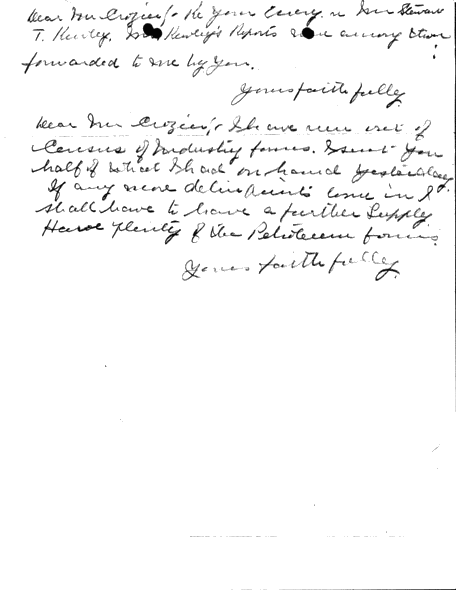 Dear Mr Crozier,- Re your Enquiry re Mr Stewart
T. Kewley, Mr Kewley's Reports were among others
forwarded to me by you.
Yours faithfully
Dear Mr Crozier,- I have run out of
Census of Industry forms. I sent you
half of what I had on hand yesterday.
If any more delinquents come in I
shall have to have a further supply.
Have plenty of the Petroleum forms.
Yours faithfully.